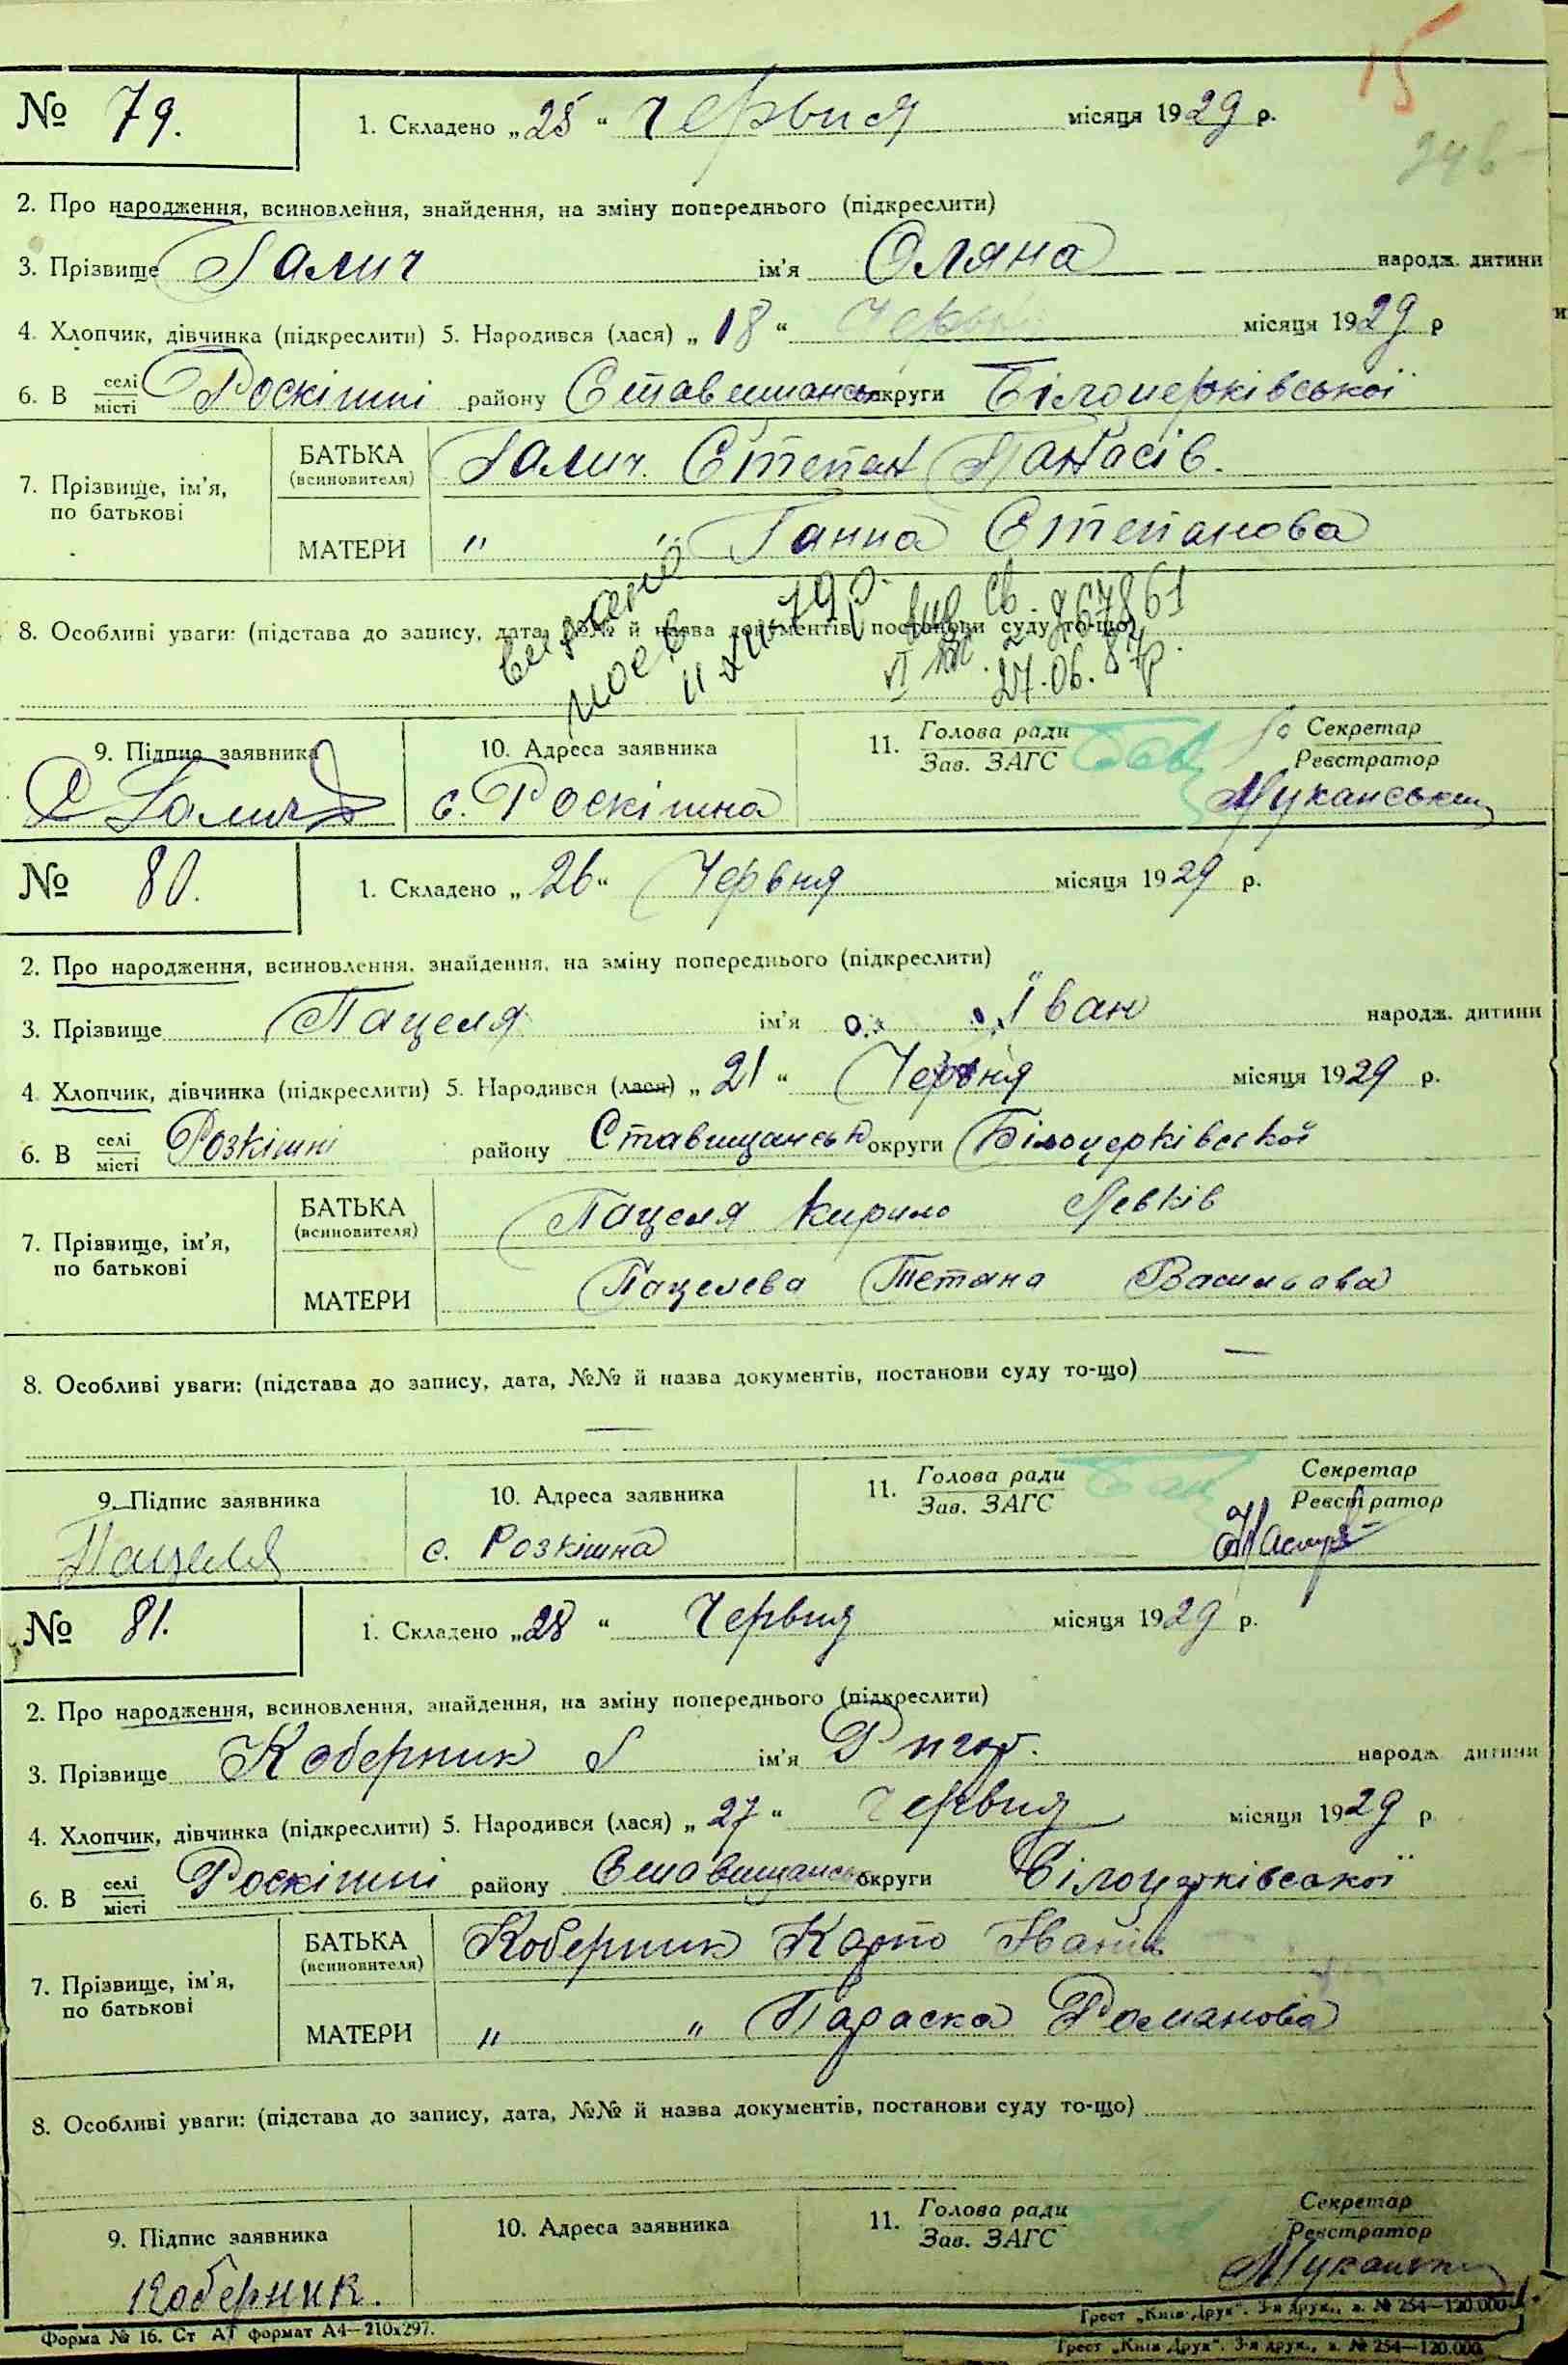 15
№ 79. 1. Складено „25“ Червня місяця 1929 р.
2. Про народження, всиновлення, знайдення, на зміну попереднього (підкреслити)
3. Прізвище Галич ім'я Оляна народж. дитини
4. Хлопчик, дівчинка (підкреслити) 5. Народився (лася) „18“ Червня місяця 1929 р
6. В селі місті Роскішні району Ставищансь округи Білоцерківської
7. Прізвище, ім'я, по батькові
БАТЬКА (всиновителя) Галич Степан Панасів.
МАТЕРИ " " Ганна Степанова
8. Особливі уваги: (підстава до запису, дата, №№ й назва документів, постанови суду то-що)
27.06.87р.
9. Підпис заявника 10. Адреса заявника 11. Голова ради Зав. ЗАГС Секретар Реєстратор
Галич с. Роскішна
№ 80. 1. Складено „26“ Червня місяця 1929 р.
2. Про народження, всиновлення, знайдення, на зміну попереднього (підкреслити)
3. Прізвище Пацеля ім'я Іван народж. дитини
4. Хлопчик, дівчинка (підкреслити) 5. Народився (лася) „21“ Червня місяця 1929 р.
6. В селі місті Розкішні району Ставищансько округи Білоцерківської
7. Прізвище, ім'я, по батькові
БАТЬКА (всиновителя) Пацеля Кирило Левків
МАТЕРИ Пацелева Тетяна Васильова
8. Особливі уваги: (підстава до запису, дата, №№ й назва документів, постанови суду то-що) —
—
9. Підпис заявника 10. Адреса заявника 11. Голова ради Зав. ЗАГС Секретар Реєстратор
Пацеля с. Розкішна
№ 81. 1. Складено „28“ Червня місяця 1929 р.
2. Про народження, всиновлення, знайдення, на зміну попереднього (підкреслити)
3. Прізвище Коберник ім'я народж. дитини
4. Хлопчик, дівчинка (підкреслити) 5. Народився (лася) „27“ Червня місяця 1929 р.
6. В селі місті Роскішні району Ставищансь округи Білоцерківської
7. Прізвище, ім'я, по батькові
БАТЬКА (всиновителя) Коберник Карпо Іванів
МАТЕРИ " " Параска Романова
8. Особливі уваги: (підстава до запису, дата, №№ й назва документів, постанови суду то-що)
9. Підпис заявника 10. Адреса заявника 11. Голова ради Зав. ЗАГС Секретар Реєстратор
Коберник.
Форма № 16. Ст АТ формат А4—210х297. Трест „Київ-Друк“. 3-я друк., з. № 254—120.000
Трест „Київ-Друк“. 3-я друк., з. № 254—120.000